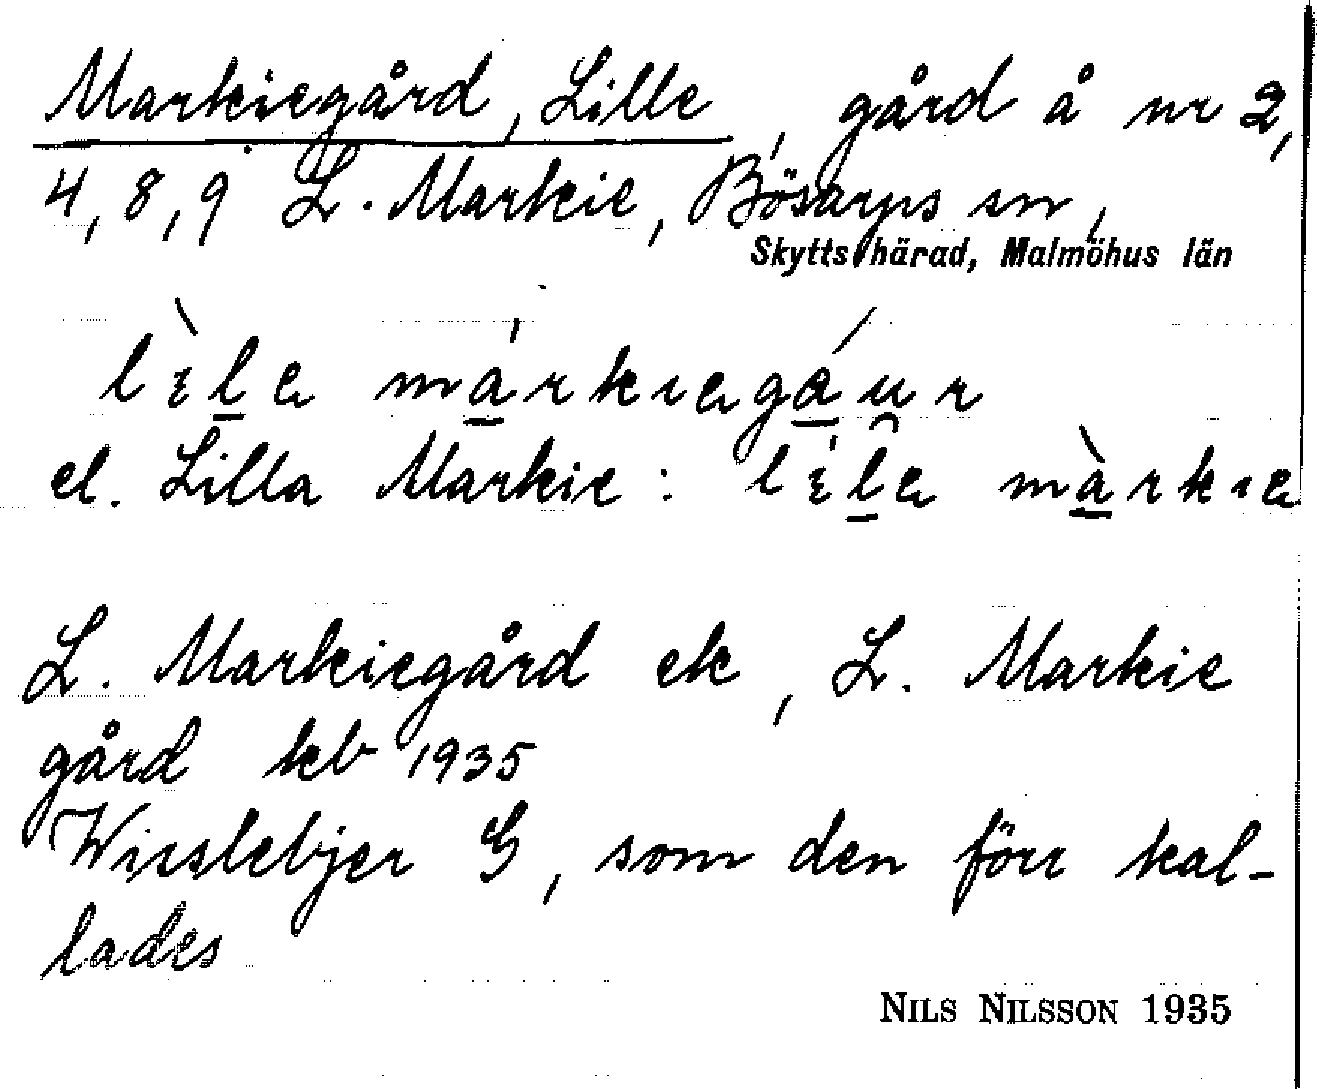 Markiegård, Lille, gård å nr 2,
4, 8, 9 L. Markie, Bösarps sn,
Skytts härad, Malmöhus län
lìle márkiegáur
el. Lilla Markie: líle màrkie
L. Markiegård ek, L. Markie
gård kb 1935
Wisslebjer G, som den förr kal-
lades
NILS NILSSON 1935